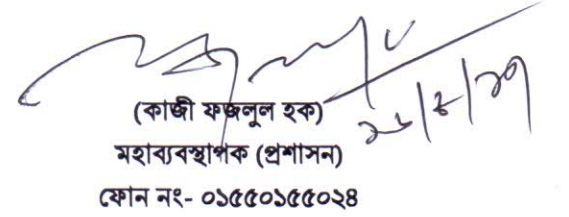 (কাজী ফজলুল হক)
মহাব্যবস্থাপক (প্রশাসন)
ফোন নং- ০১৫৫০১৫৫০২৪